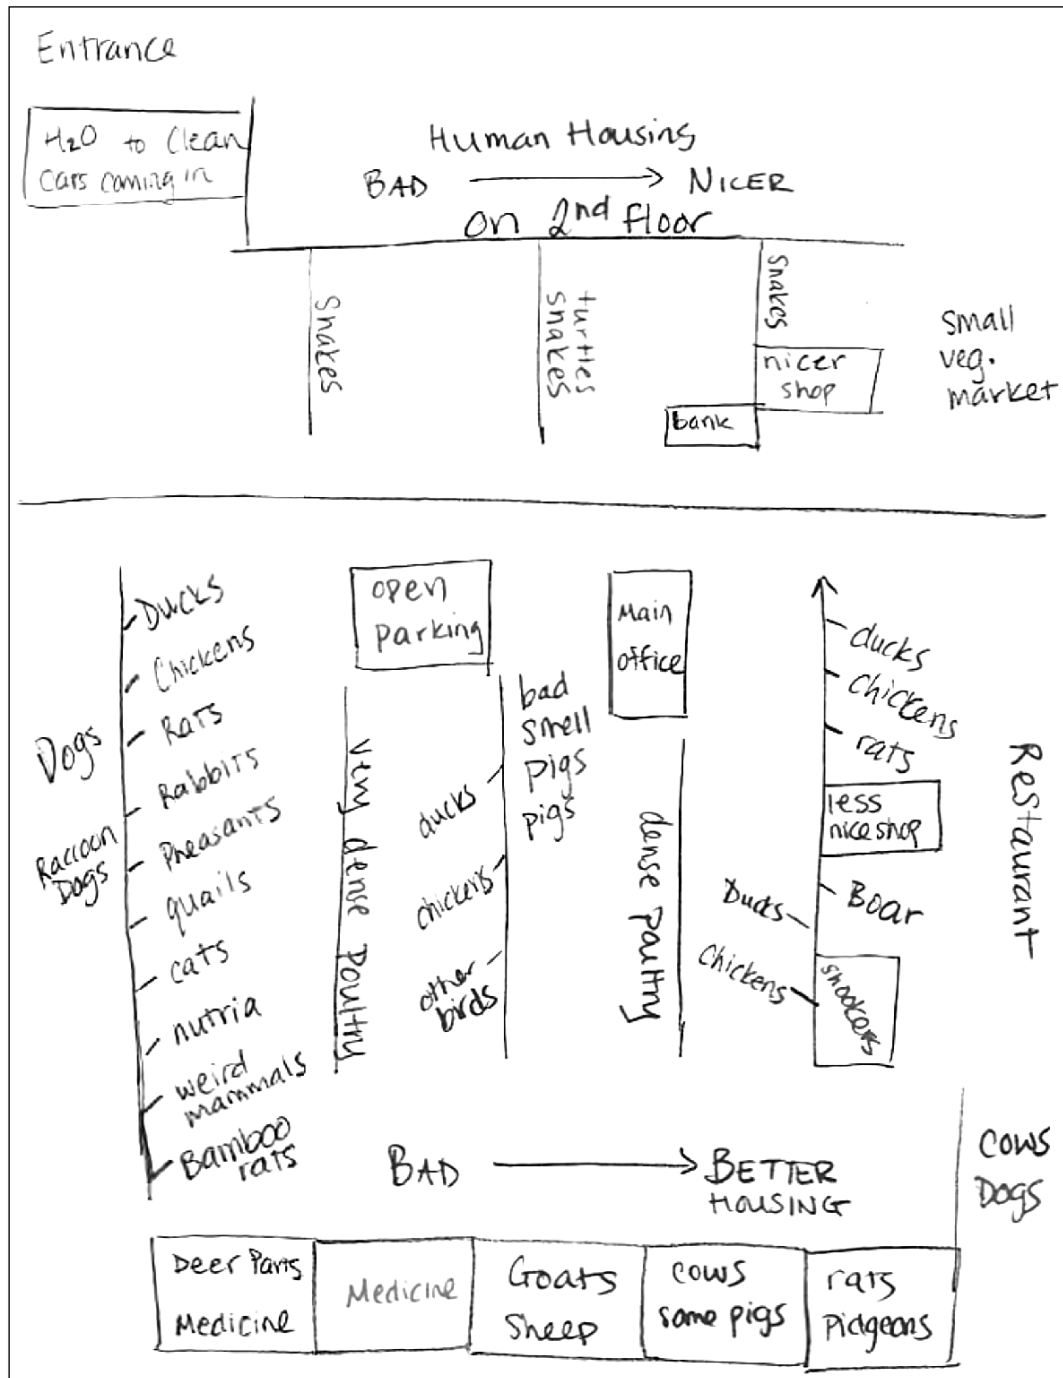 Entrance
H₂O to Clean
Cars coming in
Human Housing
BAD → NICER
on 2nd floor
Snakes
turtles
snakes
Snakes
nicer
shop
bank
small
veg.
market
Dogs
Raccoon
Dogs
Ducks
Chickens
Rats
Rabbits
Pheasants
quails
cats
nutria
weird
mammals
Bamboo
rats
open
parking
very dense Poultry
ducks
chickens
other
birds
bad
smell
pigs
pigs
Main
office
dense poultry
ducks
chickens
rats
less
nice shop
Boar
Ducks
chickens
Restaurant
BAD → BETTER
HOUSING
cows
Dogs
Deer Parts
Medicine
Medicine
Goats
Sheep
cows
some pigs
rats
Pidgeons